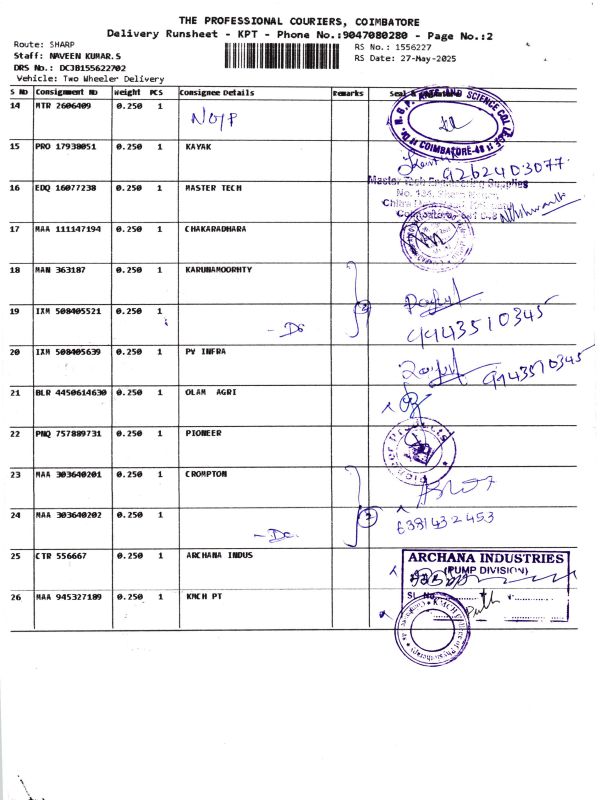 THE PROFESSIONAL COURIERS, COIMBATORE
Delivery Runsheet - KPT - Phone No.:9047080280 - Page No.:2
Route: SHARP
RS No.: 1556227
Staff: NAVEEN KUMAR.S
RS Date: 27-May-2025
DRS No.: DCJB155622702
Vehicle: Two Wheeler Delivery
S No Consignment No Weight PCS Consignee Details Remarks
14 MTR 2606409 0.250 1
ARTS AND SCIENCE COLLEGE
COIMBATORE-48
15 PRO 17938051 0.250 1 KAYAK
9262403077
16 EDQ 16077238 0.250 1 MASTER TECH
Master Tech Engineering Supplies
17 MAA 111147194 0.250 1 CHAKARADHARA
18 MAN 363187 0.250 1 KARUNAMOORHTY
19 IXM 508405521 0.250 1 - Do
2
9943510345
20 IXM 508405639 0.250 1 PV INFRA
9943510345
21 BLR 4450614630 0.250 1 OLAM AGRI
22 PNQ 757889731 0.250 1 PIONEER
23 MAA 303640201 0.250 1 CROMPTON
24 MAA 303640202 0.250 1 - Do
2
6381432453
25 CTR 556667 0.250 1 ARCHANA INDUS
ARCHANA INDUSTRIES
(PUMP DIVISION)
Sl. No.
26 MAA 945327189 0.250 1 KMCH PT
KMCH College of Physiotherapy